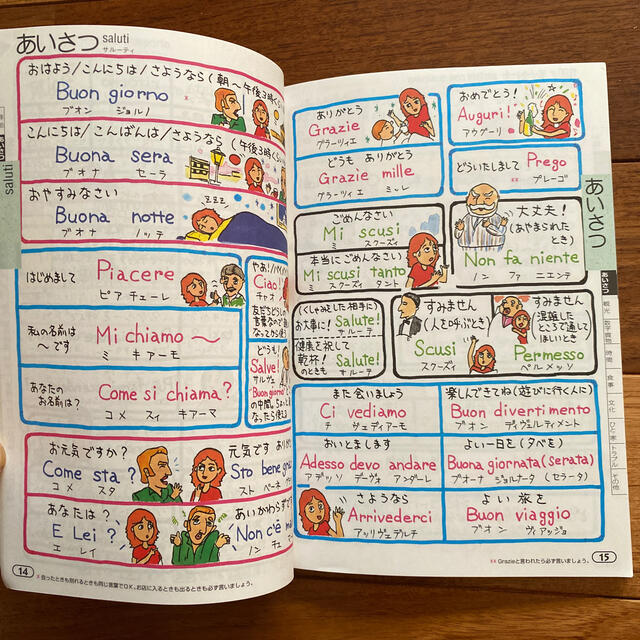 あいさつ saluti
サルーティ
おはよう/こんにちは/さようなら(朝〜午後3時く
Buon giorno
ブオン ジョルノ
こんにちは/こんばんは/さようなら(午後3時くらい
Buona sera
ブオナ セーラ
おやすみなさい
Buona notte
ブオナ ノッテ
zzz
はじめまして
Piacere
ピアチェーレ
私の名前は
〜です
Mi chiamo 〜
ミ キアーモ
あなたの
お名前は?
Come si chiama?
コメ スィ キアーマ
Ciao!
チャオ
友だちどうしの
どうも!
Salve!
サルヴェ
"Buon giorno"
の中間。
お元気ですか?
Come sta?
コメ スタ
元気です
Sto bene
スト ベーネ
あなたは?
E Lei?
エ レイ
あいかわらずで
Non c'è
ノン チェ
14
※会ったときも別れるときも同じ言葉でOK。お店に入るときも出るときも必ず言いましょう。
saluti
ありがとう
Grazie
グラーツィエ
どうも ありがとう
Grazie mille
グラーツィエ ミッレ
おめでとう!
Auguri!
アウグーリ
どういたしまして
Prego
プレーゴ
ごめんなさい
Mi scusi
ミ スクーズィ
本当にごめんなさい
Mi scusi tanto
ミ スクーズィ タント
大丈夫!
(あやまられた
とき)
Non fa niente
ノン ファ ニエンテ
(くしゃみをした相手に)
お大事に! Salute!
サルーテ
健康を祝して
乾杯!
のときも
Salute!
サルーテ
すみません
(人を呼ぶとき)
Scusi
スクーズィ
すみません
混雑した
ところで通して
ほしいとき
Permesso
ペルメッソ
また会いましょう
Ci vediamo
チ ヴェディアーモ
楽しんできてね(遊びに行く人に)
Buon divertimento
ブオン ディヴェルティメント
おいとまします
Adesso devo andare
アデッソ デーヴォ アンダーレ
よい一日を(夕べを)
Buona giornata(serata)
ブオーナ ジョルナータ(セラータ)
さようなら
Arrivederci
アッリヴェデルチ
よい旅を
Buon viaggio
ブオン ヴィアッジョ
※Grazieと言われたら必ず言いましょう。
15
あいさつ
あいさつ
観光
数字買物
時間
食事
文化
ひと
家
トラブル
その他